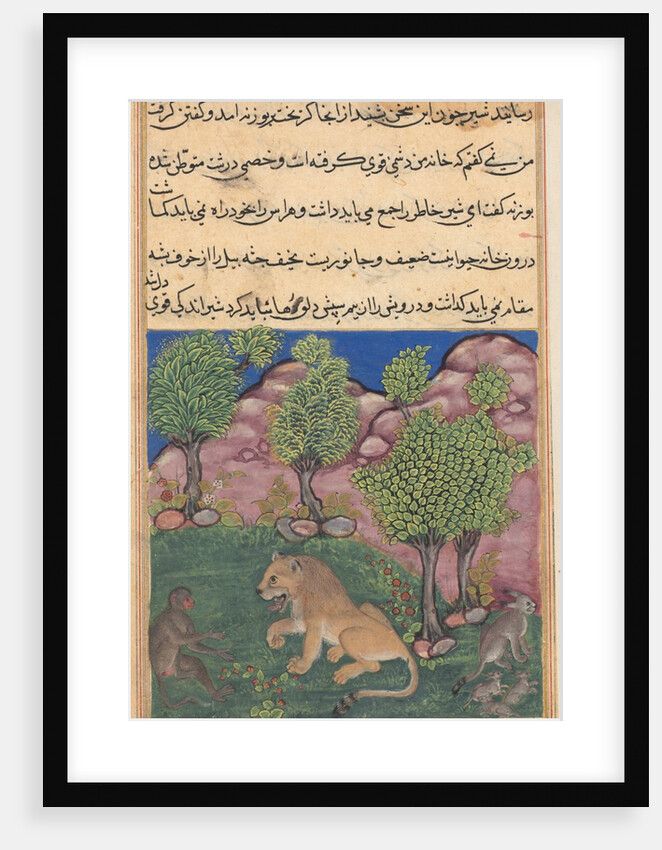 رسانید شیر چون این سخن بشنید از انجا کریخت بر بوزنه امد و کفتن کرفت
من نمی کفتم که خانه من دشمنی قوی کرفته است و خصمی درشت متوطن شده
بوزنه کفت ای شیر خاطر را جمع می باید داشت و هراس را بخود راه نمی باید کماشت
درون خانه حیوانیست ضعیف و جانوریست نحیف جثه پیل را از خوف پشه
مقام نمی باید کذاشت و درویش را از بیم سپش دلق رها نباید کرد شیر اندکی قوی دل شد